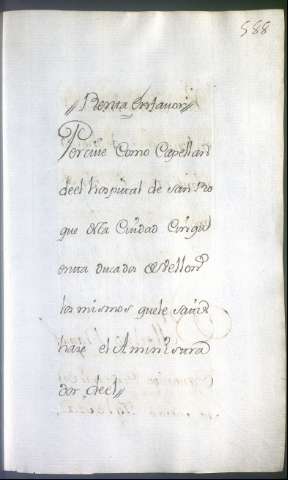 588
//Renta en favor//
Percive Como Capellan
de el Hospital de San Ro
que esta Ciudad Cinqu
enta ducados de Vellon
los mismos que le Satis
haze el Aministra
dor de el//